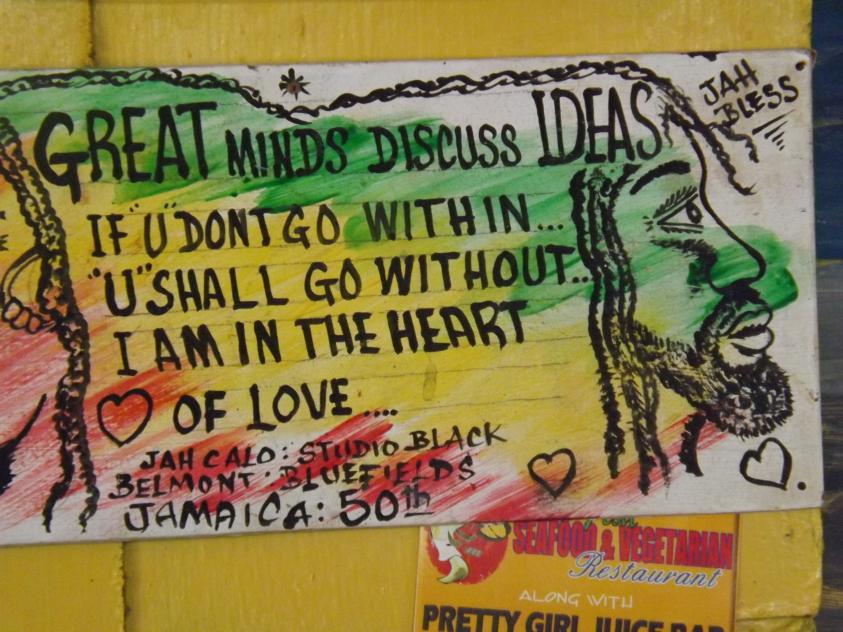 GREAT MINDS DISCUSS IDEAS
JAH
BLESS
IF "U" DONT GO WITHIN...
"U" SHALL GO WITHOUT...
I AM IN THE HEART
OF LOVE....
JAH CALO: STUDIO BLACK
BELMONT: BLUEFIELDS
JAMAICA: 50th
SEAFOOD & VEGETARIAN
Restaurant
ALONG WITH
PRETTY GIRL JUICE BAR